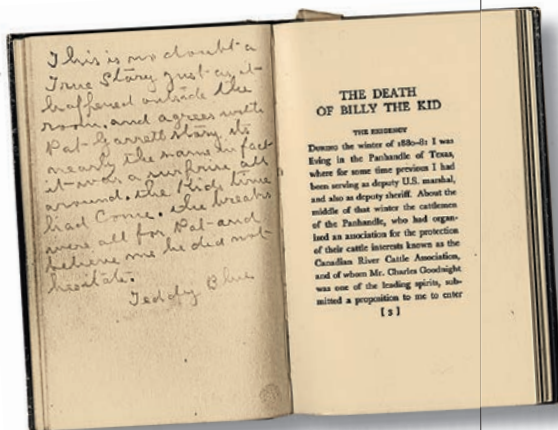 This is no doubt a
True Story just as it
haffered outside the
room. and agrees with
Pat Garrett story its
nearly the same in fact
it was a surprise all
around. the Kids time
had Come. the breaks
were all for Pat and
believe me he did not
hesitate.
Teddy Blue
THE DEATH
OF BILLY THE KID
THE EXIGENCY
DURING the winter of 1880-81 I was
living in the Panhandle of Texas,
where for some time previous I had
been serving as deputy U.S. marshal,
and also as deputy sheriff. About the
middle of that winter the cattlemen
of the Panhandle, who had organ-
ized an association for the protection
of their cattle interests known as the
Canadian River Cattle Association,
and of whom Mr. Charles Goodnight
was one of the leading spirits, sub-
mitted a proposition to me to enter
[ 5 ]